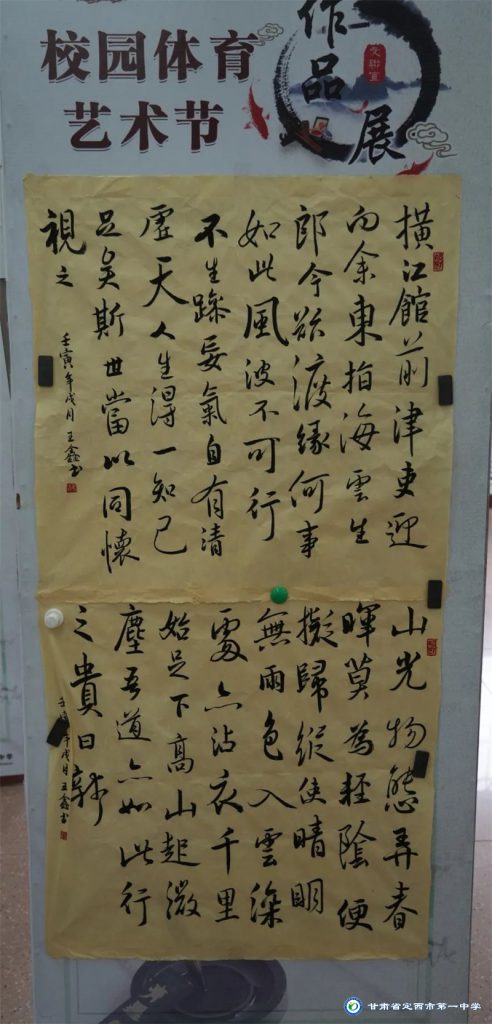 校园体育
艺术节
作品展
橫江館前津吏迎
向余東指海雲生
郎今欲渡緣何事
如此風波不可行
不生躁妄氣自有清
虛天人生得一知己
足矣斯世當以同懷
視之
壬寅年戌月王鑫书
山光物態弄春
暉莫為輕陰便
擬歸縱使晴明
無雨色入雲深
處亦沾衣千里
始足下高山起微
塵吾道亦如此行
之貴日新
年戌月王鑫書
甘肃省定西市第一中学